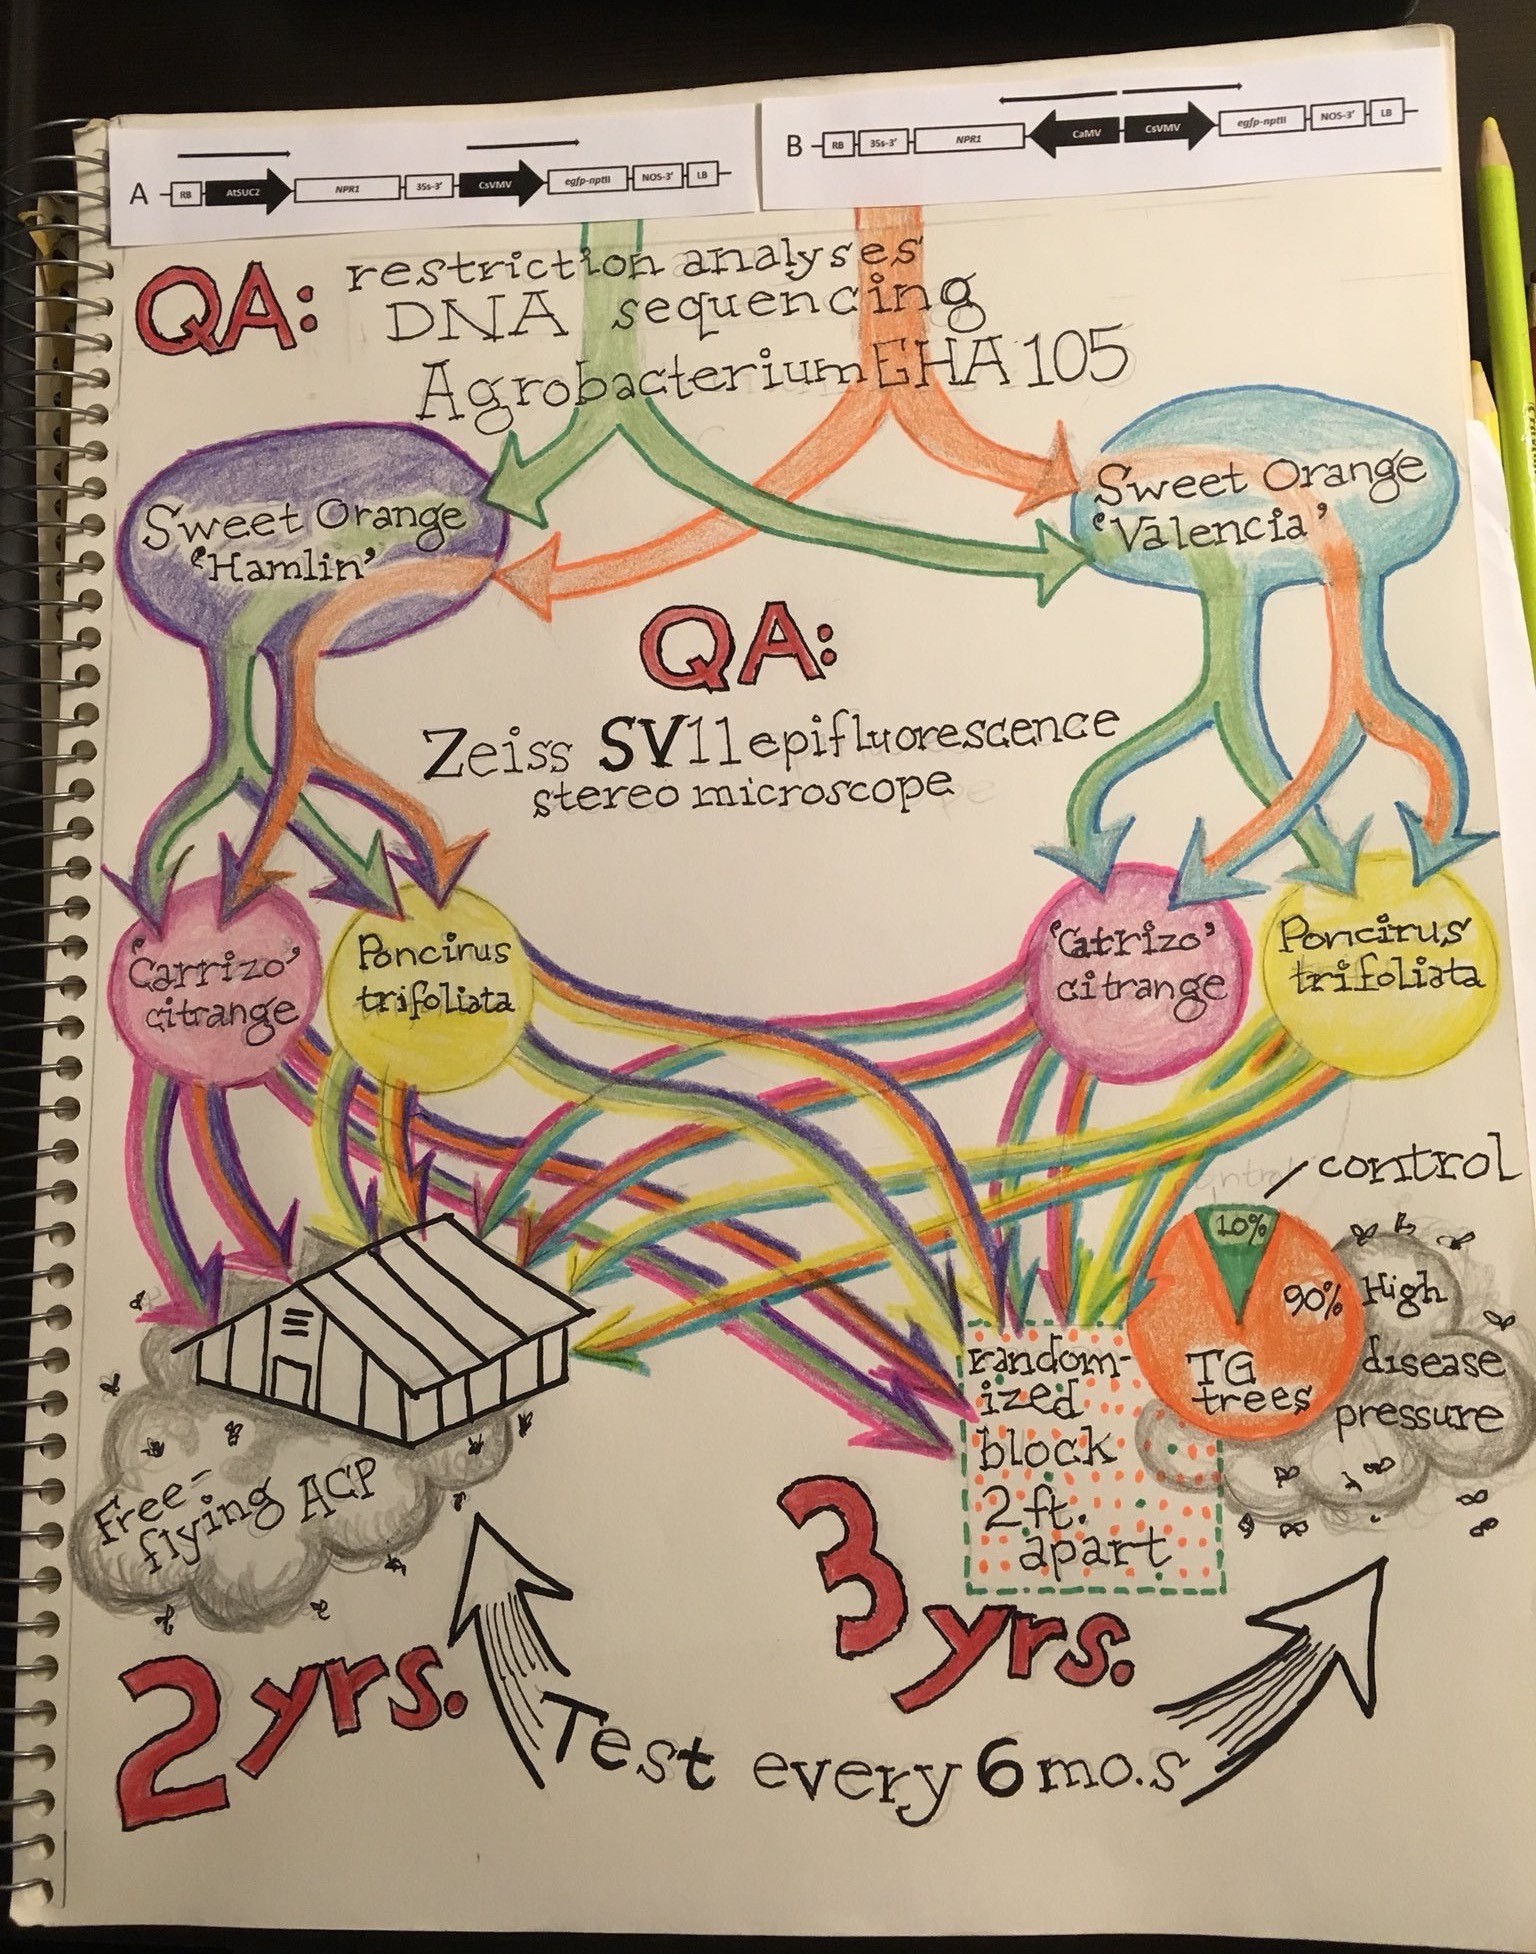 A RB AtSUC2 NPR1 35s-3' CsVMV egfp-nptII NOS-3' LB
B RB 35s-3' NPR1 CaMV CsVMV egfp-nptII NOS-3' LB
QA: restriction analyses
DNA sequencing
Agrobacterium EHA 105
Sweet Orange
'Hamlin'
Sweet Orange
'Valencia'
QA:
Zeiss SV11 epifluorescence
stereo microscope
'Carrizo'
citrange
Poncirus
trifoliata
'Catrizo'
citrange
Poncirus
trifoliata
control
10%
90%
TG
trees
High
disease
pressure
random-
ized
block
2 ft.
apart
Free-
flying ACP
2 yrs.
3 yrs.
Test every 6 mo.s